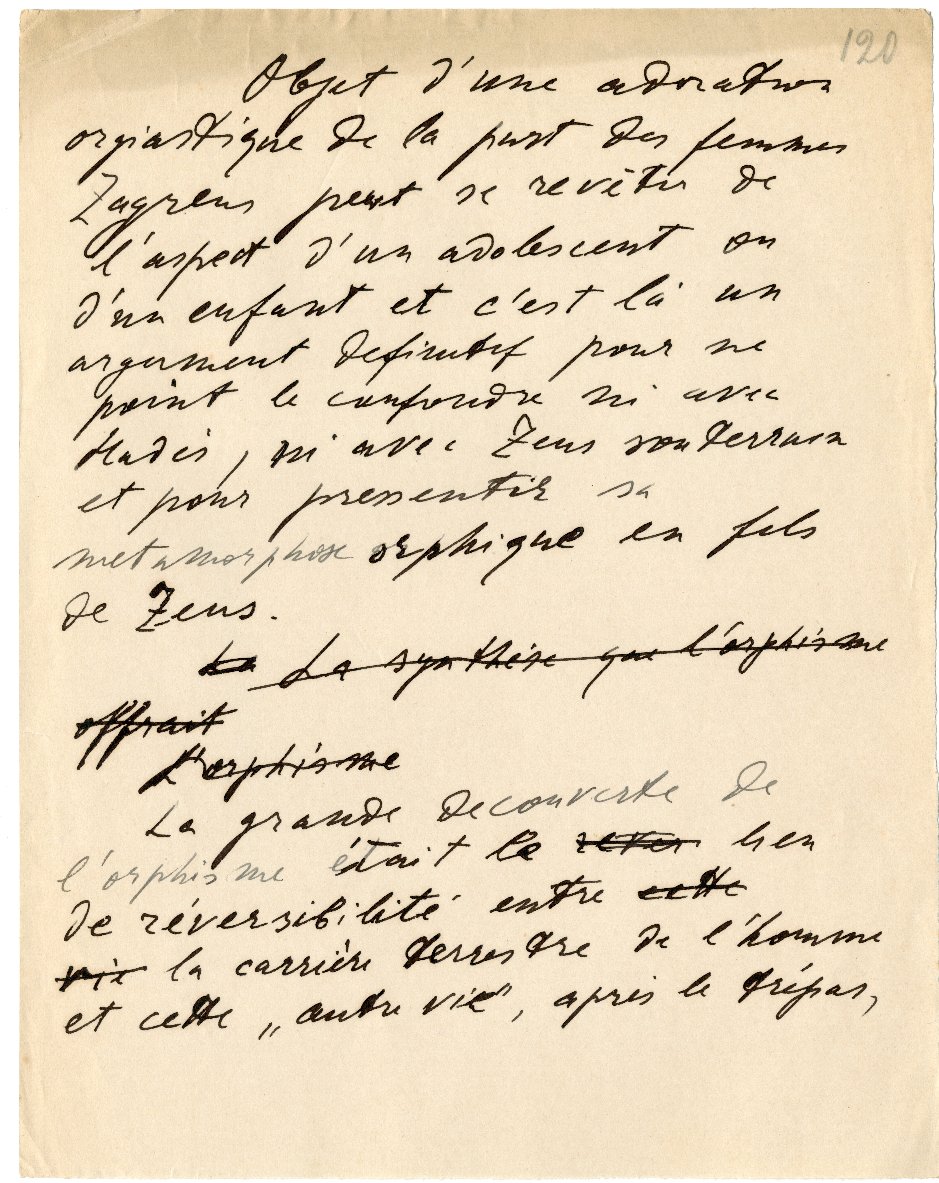 120
Objet d'une adoration
orgiastique de la part des femmes
Zagreus peut se revêtir de
l'aspect d'un adolescent ou
d'un enfant et c'est là un
argument definitif pour ne
point le confondre ni avec
Hadès, ni avec Zeus souterrain
et pour pressentir sa
metamorphose orphique en fils
de Zeus.
La La synthèse que l'orphisme
offrait
L'orphisme
La grande decouverte de
l'orphisme était le lien
de réversibilité entre cette
vie la carrière terrestre de l'homme
et cette „autre vie”, après le trépas,